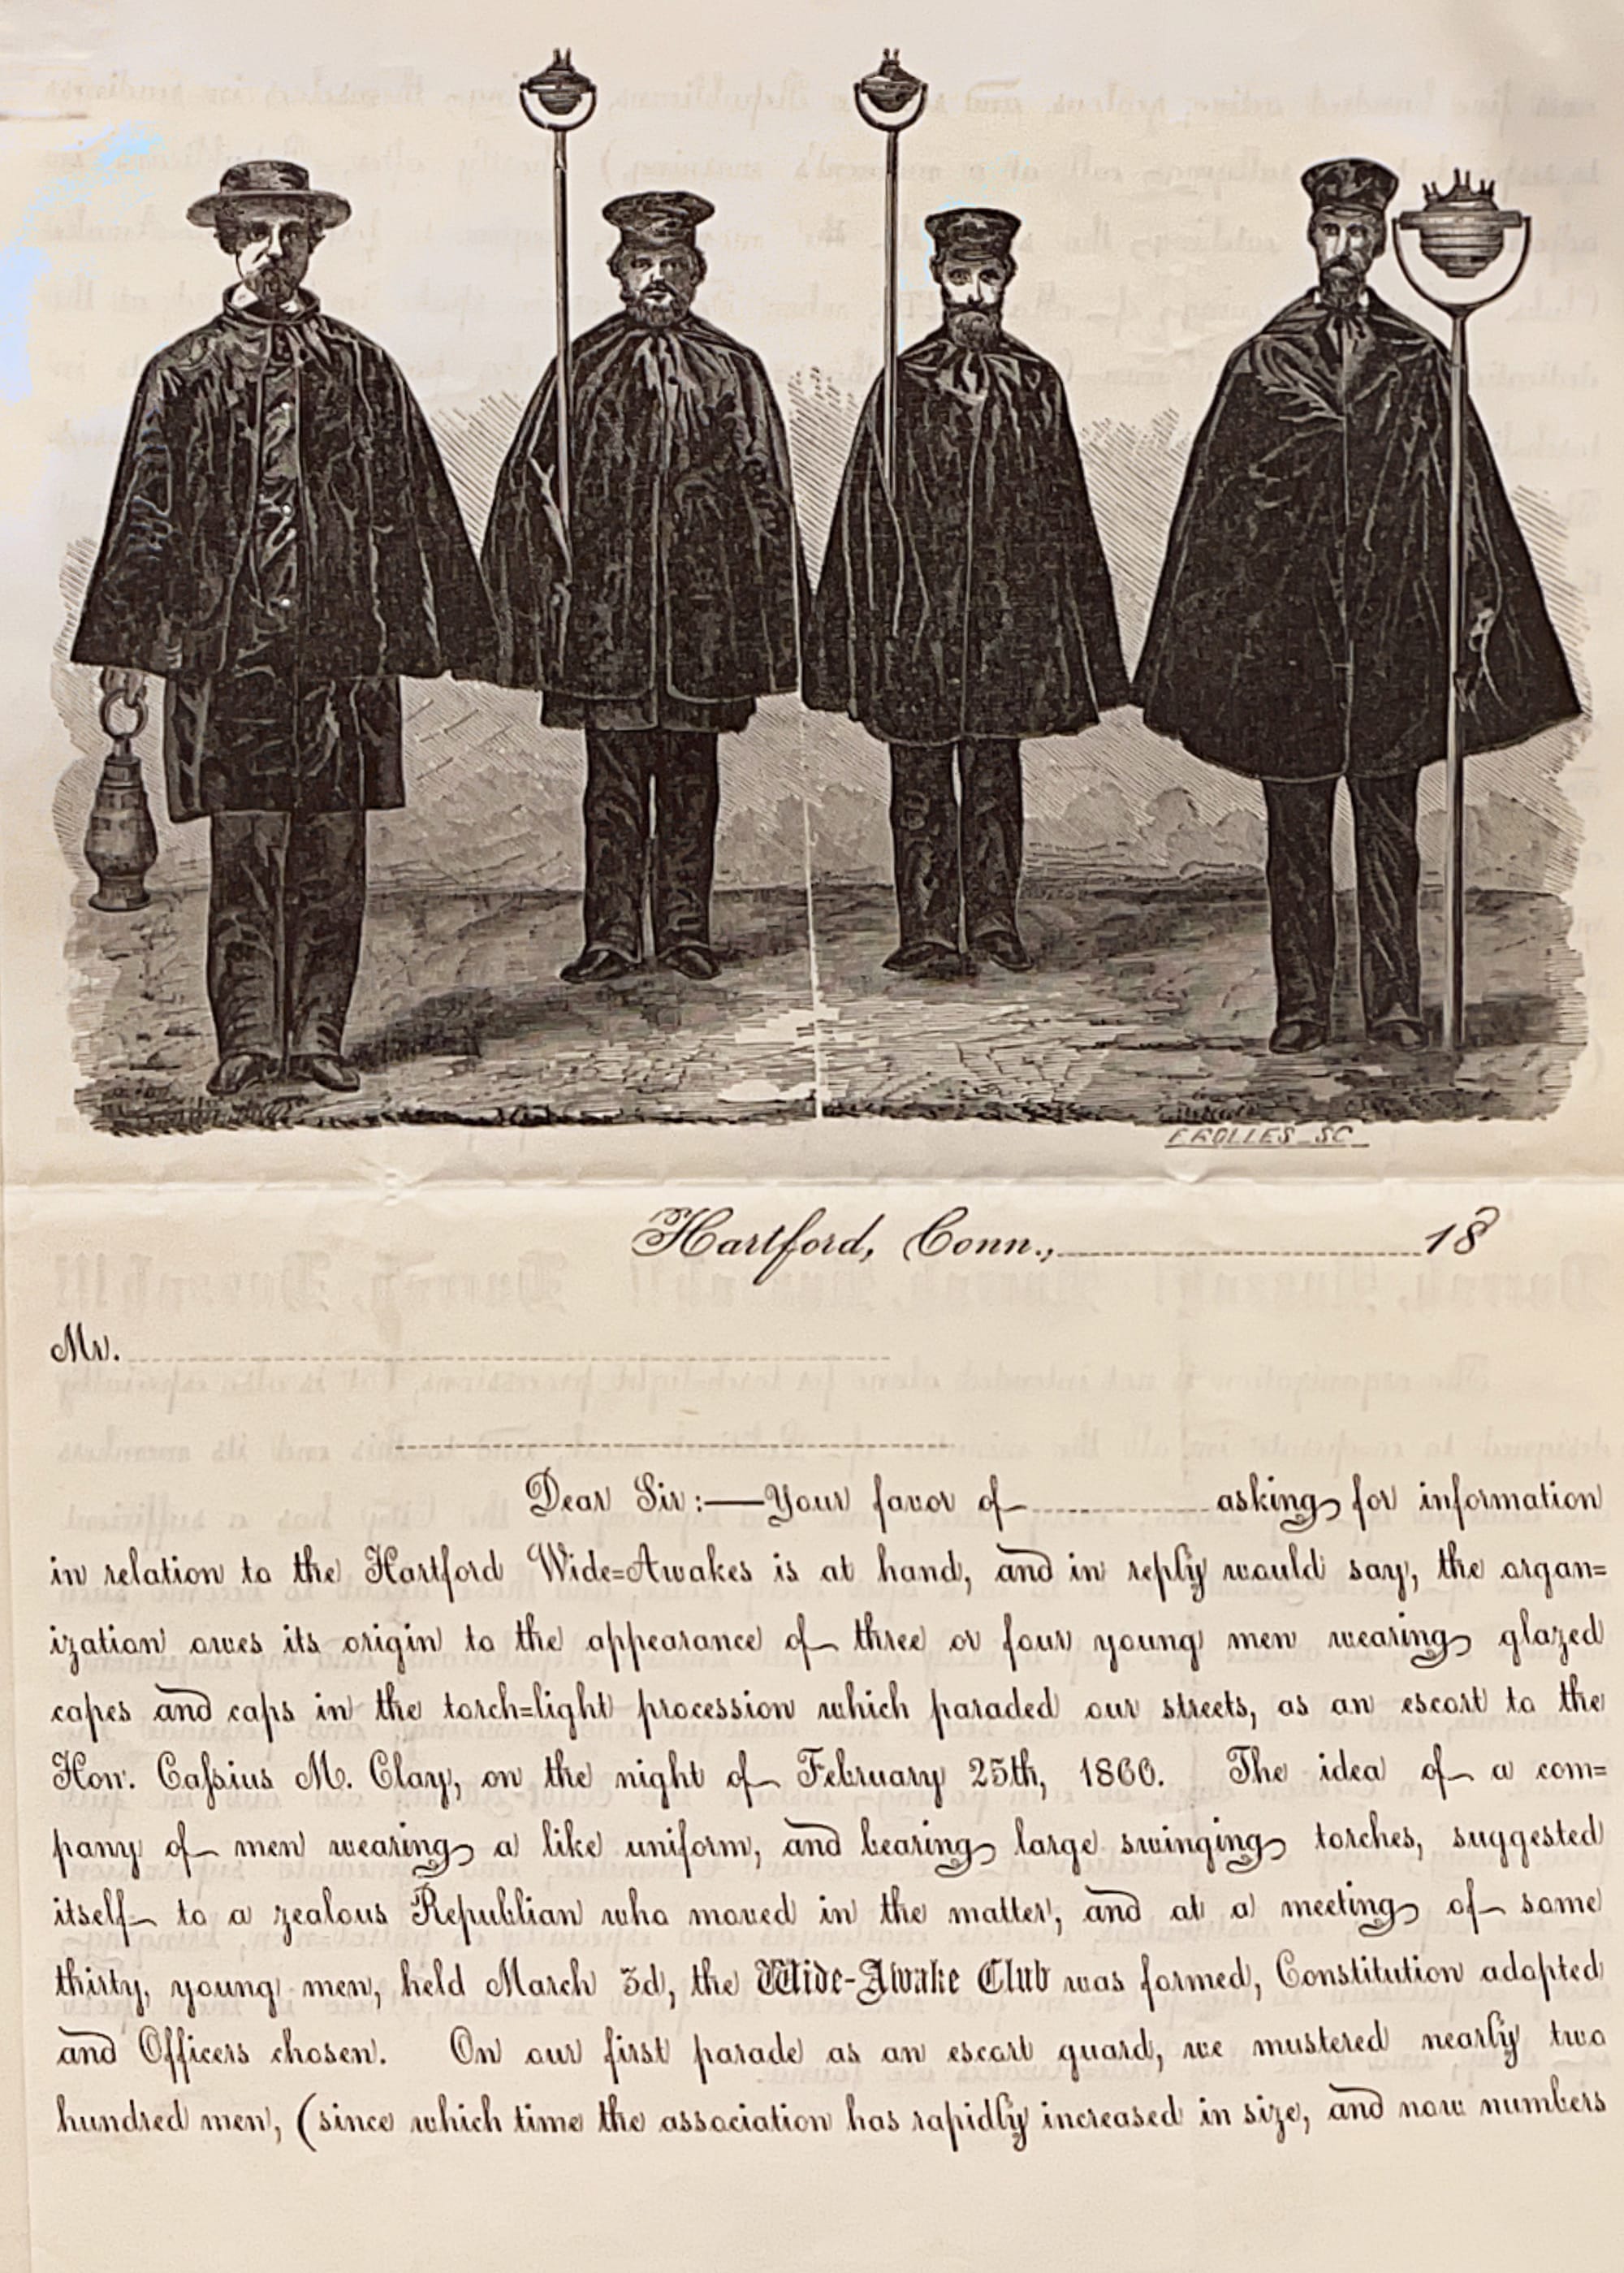 Hartford, Conn., 18
Mr.
Dear Sir:—Your favor of asking for information
in relation to the Hartford Wide=Awakes is at hand, and in reply would say, the organ=
ization owes its origin to the appearance of three or four young men wearing glazed
capes and caps in the torch=light procession which paraded our streets, as an escort to the
Hon. Caſsius M. Clay, on the night of February 25th, 1860. The idea of a com=
pany of men wearing a like uniform, and bearing large swinging torches, suggested
itself to a zealous Republian who moved in the matter, and at a meeting of some
thirty, young men, held March 3d, the Wide-Awake Club was formed, Constitution adopted
and Officers chosen. On our first parade as an escort guard, we mustered nearly two
hundred men, (since which time the association has rapidly increased in size, and now numbers